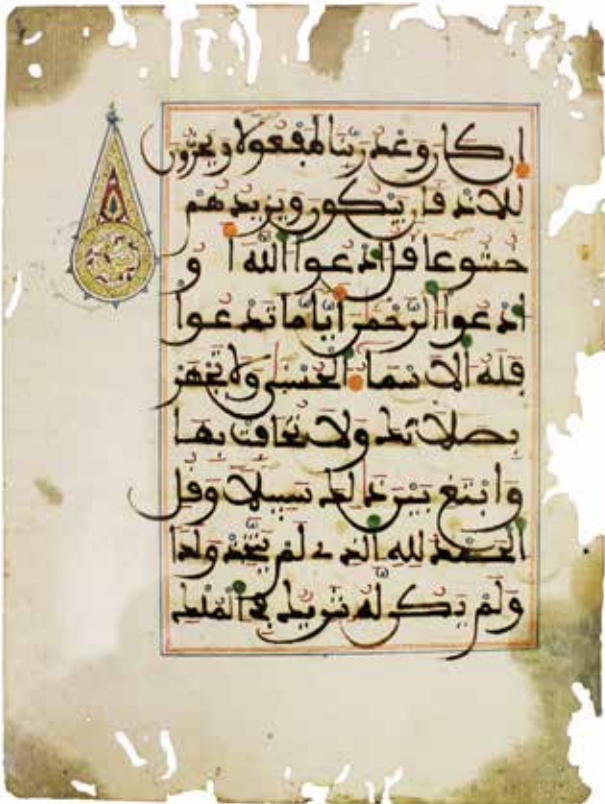 ان كان وعد ربنا لمفعولا ويخرون
للاذقان يبكون ويزيدهم
خشوعا قل ادعوا الله او
ادعوا الرحمن ايا ما تدعوا
فله الاسماء الحسنى ولا تجهر
بصلاتك ولا تخافت بها
وابتغ بين ذلك سبيلا وقل
الحمد لله الذي لم يتخذ ولدا
ولم يكن له شريك في الملك